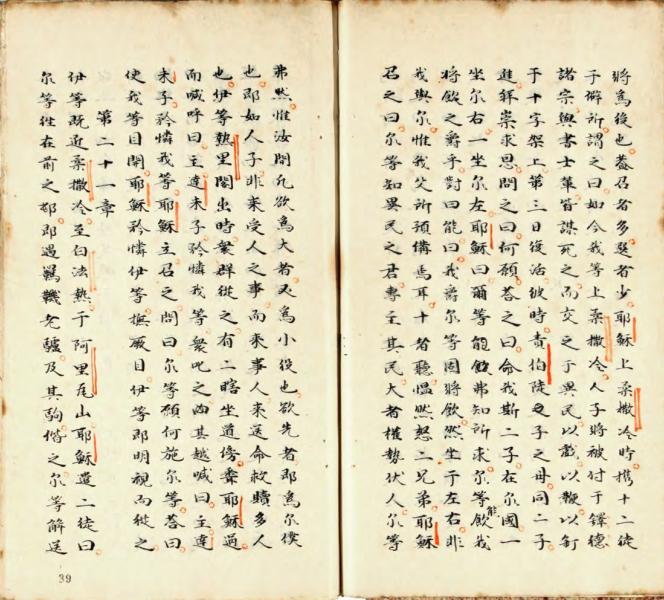 將為後也蓋召者多選者少耶穌上柔撒冷時携十二徒
于僻所謂之曰如今我等上柔撒冷人子將被付于鐸德
諸宗與書士輩皆謀死之而交之于異民以戲以鞭以釘
于十字架上第三日復活彼時責伯徒之子之母同二子
進拜崇求恩問之曰何願答之曰命我斯二子在尔國一
坐尔右一坐尔左耶穌曰爾等能飲弗知所求尔等能飲我
將飲之爵乎對曰能曰我爵尔等固將飲然坐于左右非
我與尔惟我父所預備焉耳十者聽慍然怒二兄弟耶穌
召之曰尔等知異民之君專主其民大者權勢伏人尔等
弗然惟汝間凡欲為大者必為小役也欲先者即為尔僕
也即如人子非來受人之事而來事人來送命救贖多人
也伊等熱里閣出時衆群從之有二瞎坐道傍耶穌過
而喊呼曰主達未子矜憐我等衆叱之其越喊曰主達
未子矜憐我等耶穌主召之問曰尔等願何施尔等答曰
使我等目開耶穌矜憐伊等撫厥目伊等即明視而從之
第二十一章
伊等既近柔撒冷至白法熱于阿里瓦山耶穌遣二徒曰
尔等徃在前之邨即遇羈老驢及其駒偕之尔等解送
39